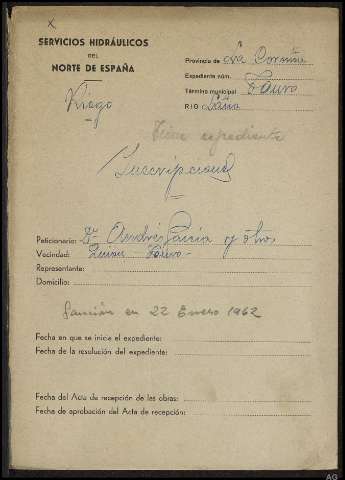 x
SERVICIOS HIDRÁULICOS
DEL
NORTE DE ESPAÑA
Riego
Provincia de La Coruña
Expediente núm.
Término municipal Touro
RIO Laña
Tiene expediente
Inscripciones
Peticionario: Dn Andrés García y otros
Vecindad: Touro
Representante:
Domicilio:
Sanción en 22 Enero 1962
Fecha en que se inicia el expediente:
Fecha de la resolución del expediente:
Fecha del Acta de recepción de las obras:
Fecha de aprobación del Acta de recepción:
AG